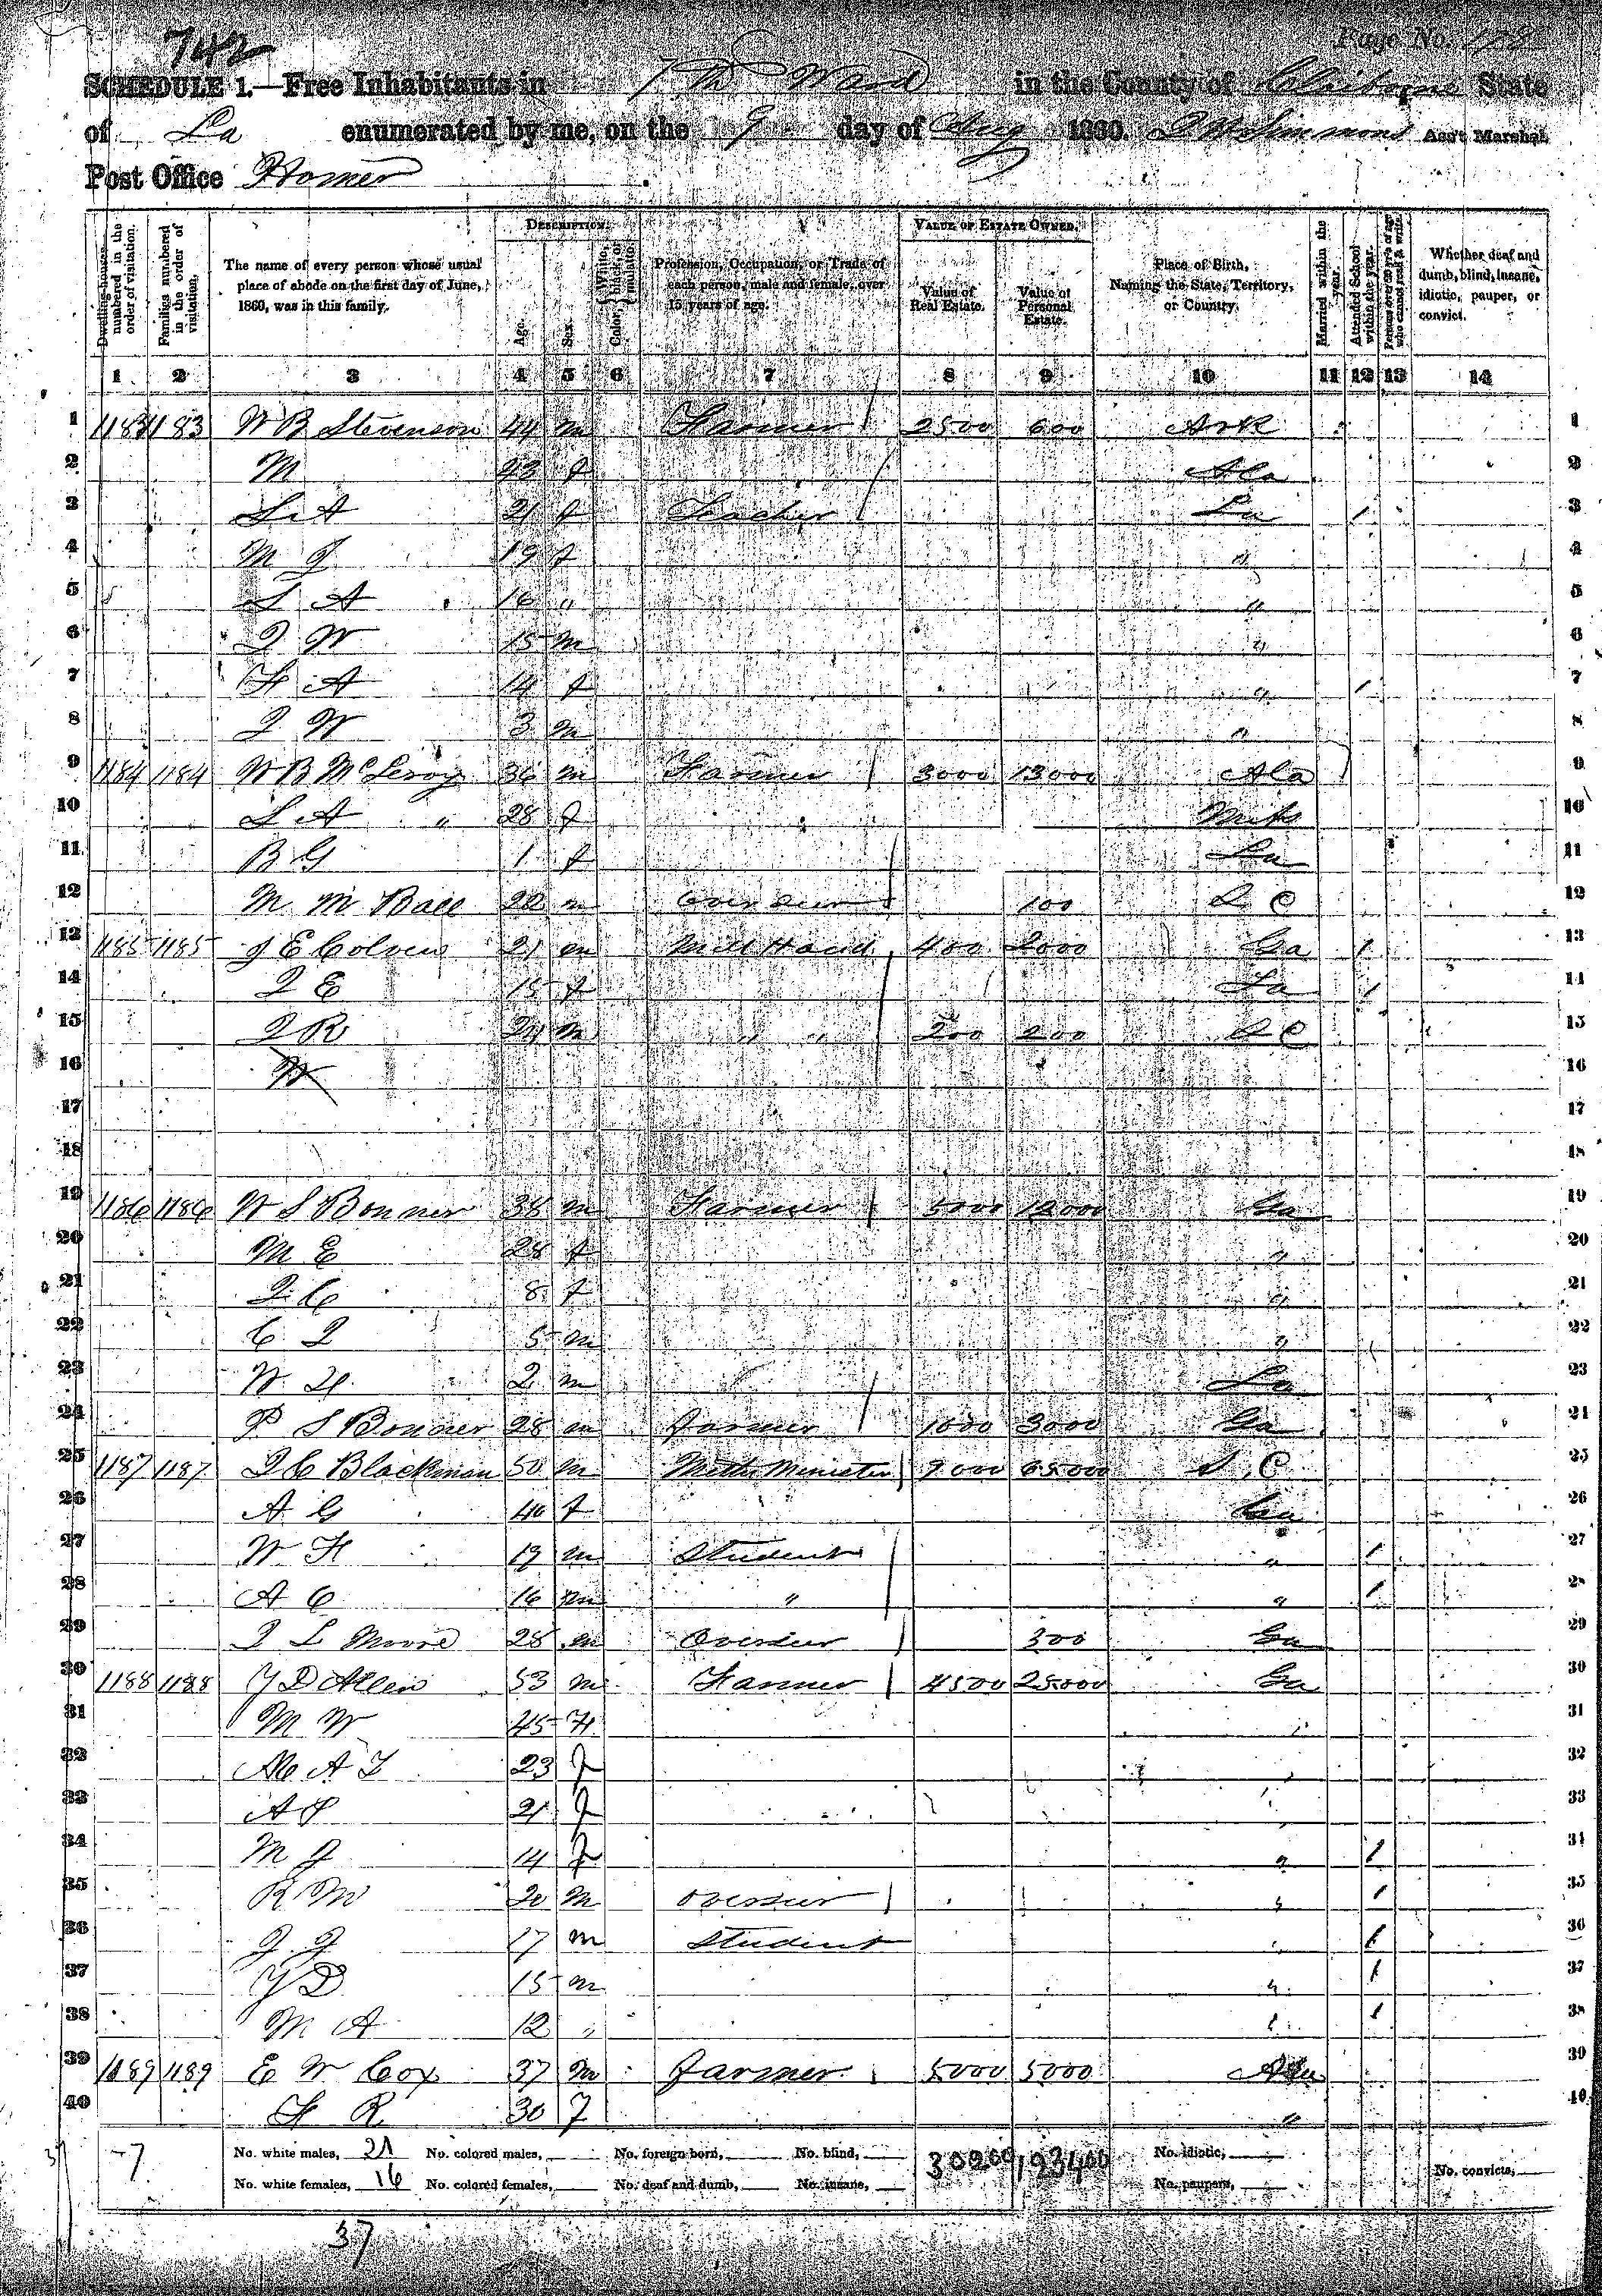 742
Page No. 178
SCHEDULE 1.—Free Inhabitants in 7th Ward in the County of Claiborne State
of La enumerated by me, on the 9 day of Aug 1860. Simmons Ass't Marshal.
Post Office Homer
Dwelling-houses numbered in the order of visitation.
Families numbered in the order of visitation.
The name of every person whose usual place of abode on the first day of June, 1860, was in this family.
DESCRIPTION.
Age.
Sex.
Color, White, black, or mulatto.
Profession, Occupation, or Trade of each person, male and female, over 15 years of age.
VALUE OF ESTATE OWNED.
Value of Real Estate.
Value of Personal Estate.
Place of Birth, Naming the State, Territory, or Country.
Married within the year.
Attended School within the year.
Persons over 20 y'rs of age who cannot read & write.
Whether deaf and dumb, blind, insane, idiotic, pauper, or convict.
1 2 3 4 5 6 7 8 9 10 11 12 13 14
1 1183 1183 W B Stevenson 44 m Farmer 2500 600 Ark 1
2 M 43 f Ala 2
3 L A 21 f Teacher La / 3
4 M J 19 f " 4
5 S A 16 " " 5
6 J W 15 m " 6
7 F A 14 f " / 7
8 J W 3 m " 8
9 1184 1184 W B McLeroy 36 m Farmer 3000 13000 Ala 9
10 L A " 28 f Miss 10
11 B G 1 f La 11
12 M M Ball 22 m Overseer 100 S C 12
13 1185 1185 J E Colvin 21 m Mill Hand 400 2000 Ga / 13
14 J E 15 f La / 14
15 J R 24 m " " 200 200 S C 15
16 16
17 17
18 18
19 1186 1186 W S Bonner 38 m Farmer 5000 12000 Ga 19
20 M E 28 f " 20
21 J C 8 f " 21
22 C J 5 m " 22
23 W H 2 m La 23
24 P S Bonner 28 m farmer 1000 3000 Ga 24
25 1187 1187 J C Blackman 50 m Meth Minister 9000 65000 S C 25
26 A G 40 f Ga 26
27 W H 19 m Student " / 27
28 A C 16 m " " / 28
29 J L Moore 28 m Overseer 300 Ga 29
30 1188 1188 Y D Allen 53 m Farmer 4500 25000 Ga 30
31 M W 45 F " 31
32 A T 23 f " 32
33 A S 21 f " 33
34 M J 14 f " / 34
35 R M 20 m overseer " / 35
36 J J 17 m Student " / 36
37 Y D 15 m " / 37
38 M A 12 " " / 38
39 1189 1189 E W Cox 37 m farmer 5000 5000 Ala 39
40 F R 30 f " 40
7 No. white males, 21 No. colored males, No. foreign born, No. blind, 30200 123400 No. idiotic,
No. white females, 16 No. colored females, No. deaf and dumb, No. insane, No. paupers, No. convicts,
37